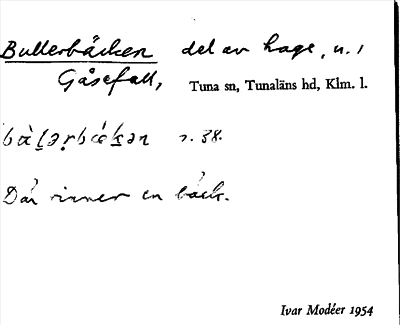 Bullerbäcken del av hage, n. 1
Gåsefall,
Tuna sn, Tunaläns hd, Klm. l.
s. 38.
Där rinner en bäck.
Ivar Modéer 1954